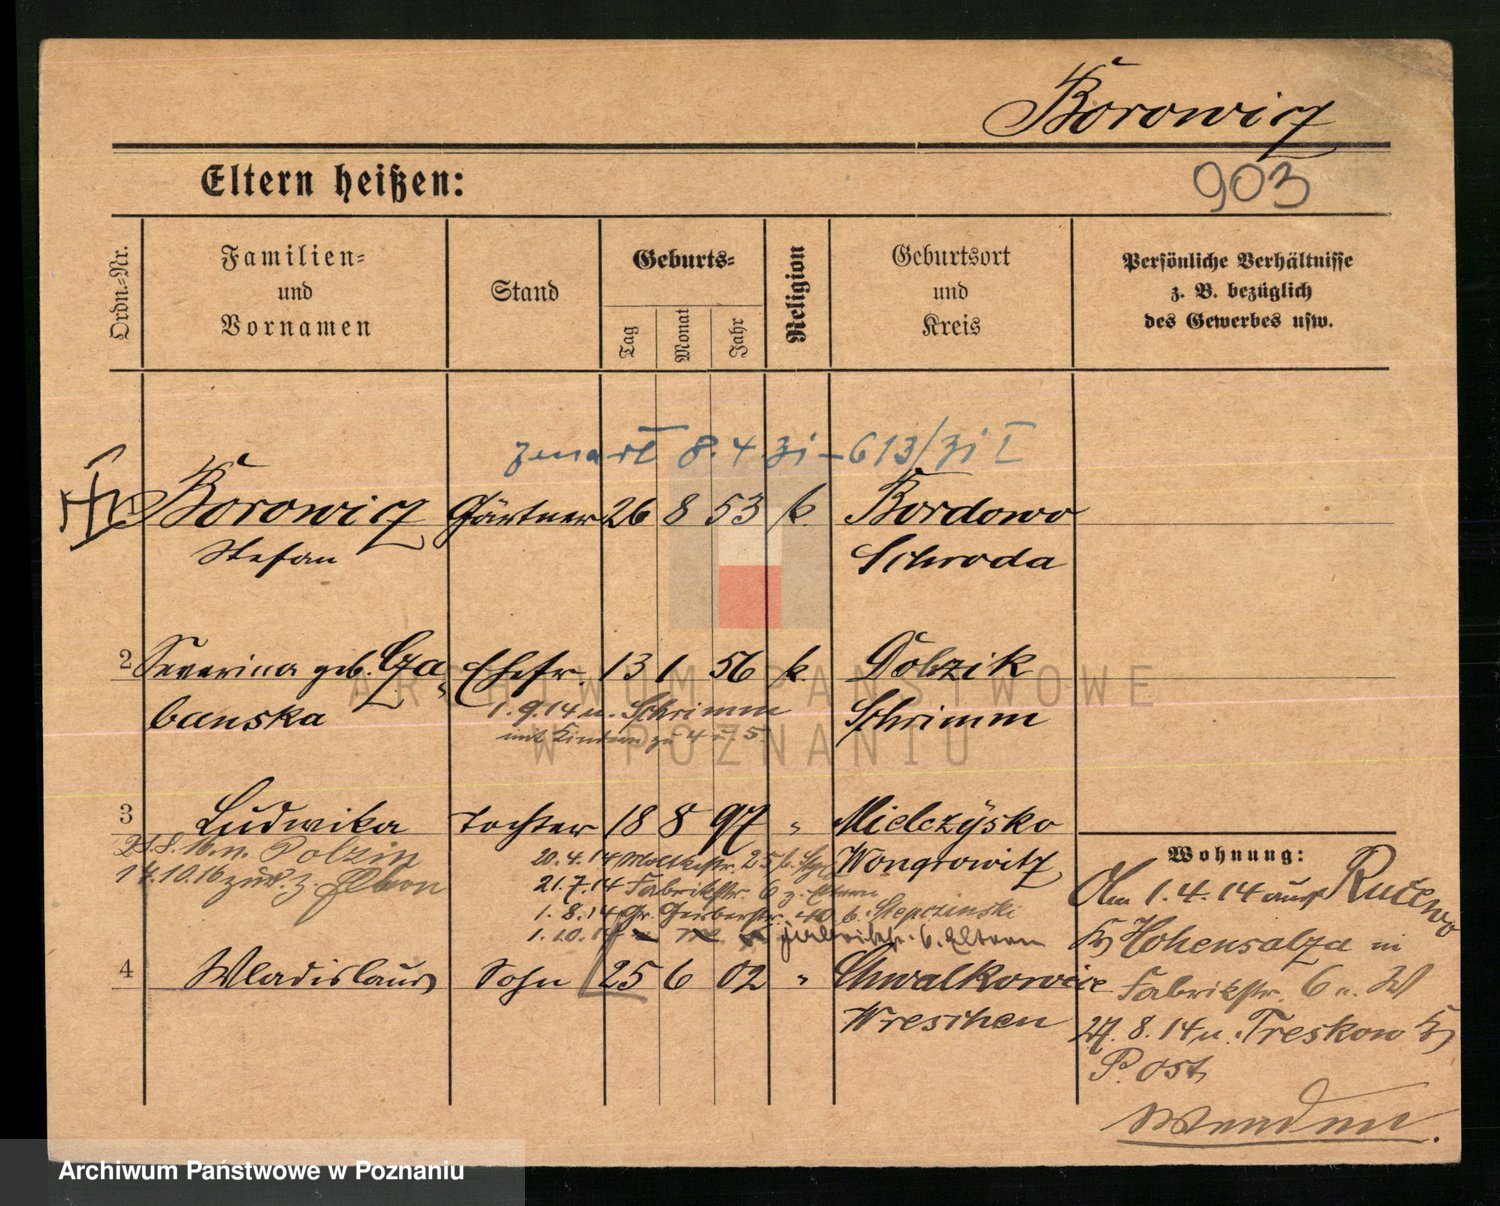 Borowicz
903
Eltern heißen:
Ordn.-Nr.
Familien-
und
Vornamen
Stand
Geburts-
Tag
Monat
Jahr
Religion
Geburtsort
und
Kreis
Persönliche Verhältnisse
z. B. bezüglich
des Gewerbes usw.
8.4.
Borowicz Gärtner 26 8 53 k. Bordowo
Stefan Schroda
2 Severina geb. Cza- Ehefr. 13 1 56 k. Dobzik
banska 1.9.14 n. Schrimm Schrimm
mit Kindern zu 4 u. 5
3 Ludwika Tochter 18 8 97 " Mielczysko
Wongrowitz
21.8.16 n. Polzin
14.10.16 zur. z.
20.4.14 Moltkestr. 25 b.
21.7.14 Fabrikstr. 6 z. Eltern
1.8.14 Gr. Gerberstr. 40 b. Stepczinski
1.10.14 Fabrikstr. 6. Eltern
4 Wladislaus Sohn 25 6 02 " Chwalkowice
Wreschen
Wohnung:
Am 1.4.14 aus Rucewo
Kr Hohensalza in
Fabrikstr. 6 n. W
27.8.14 n. Treskow Kr
P. Ost
Wenden.
ARCHIWUM PAŃSTWOWE
W POZNANIU
Archiwum Państwowe w Poznaniu